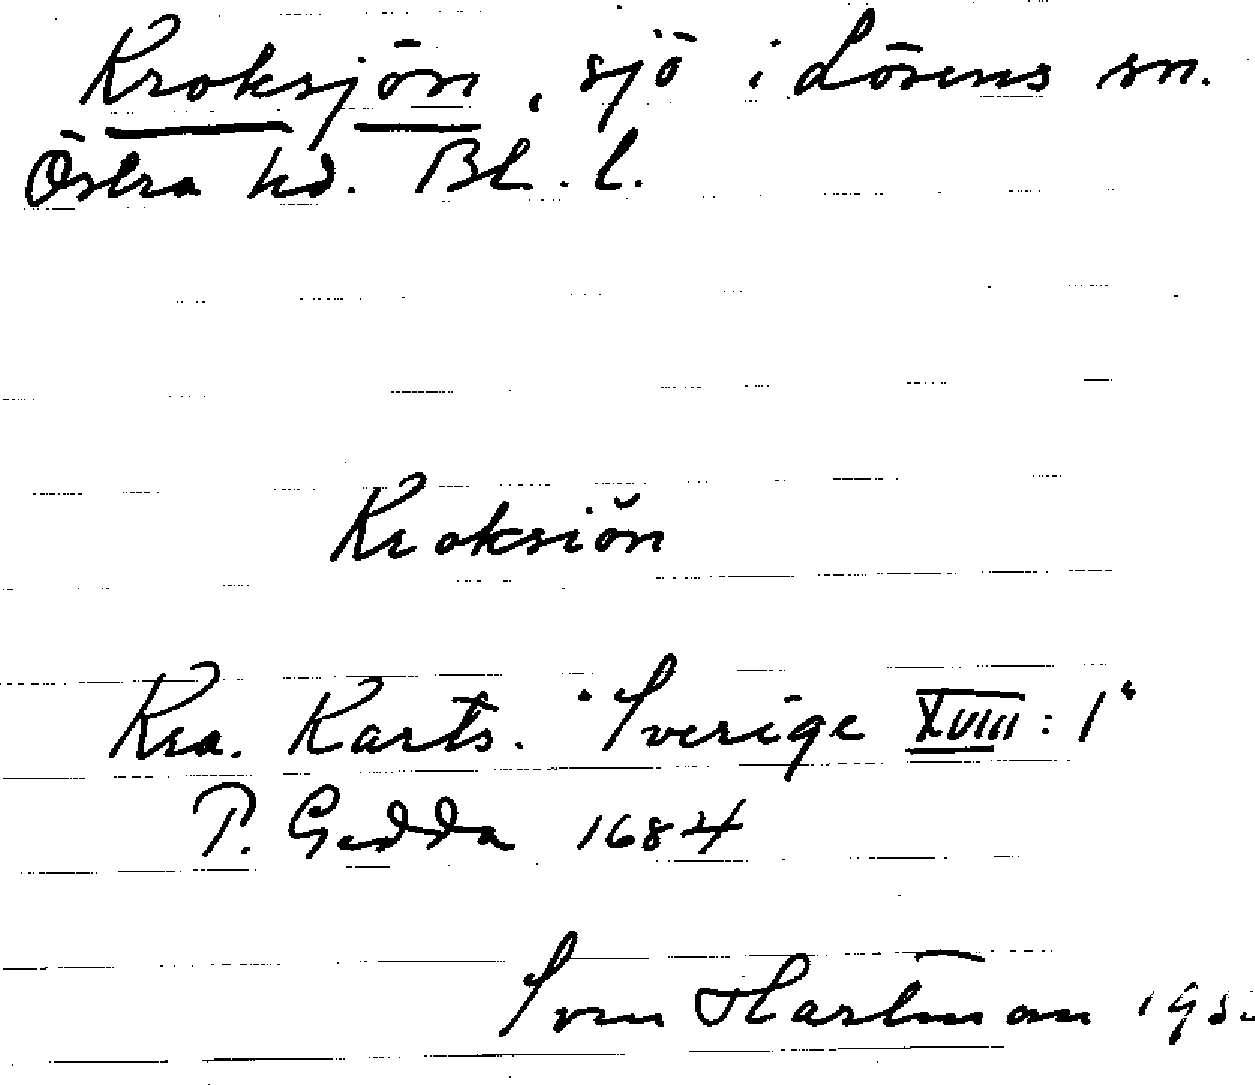 Kroksjön, sjö i Lösens sn.
Östra hd. Bl. l.
Kroksiön
Kra. Karts. "Sverige XVIII:1"
P. Gedda 1684
Sven Hartman